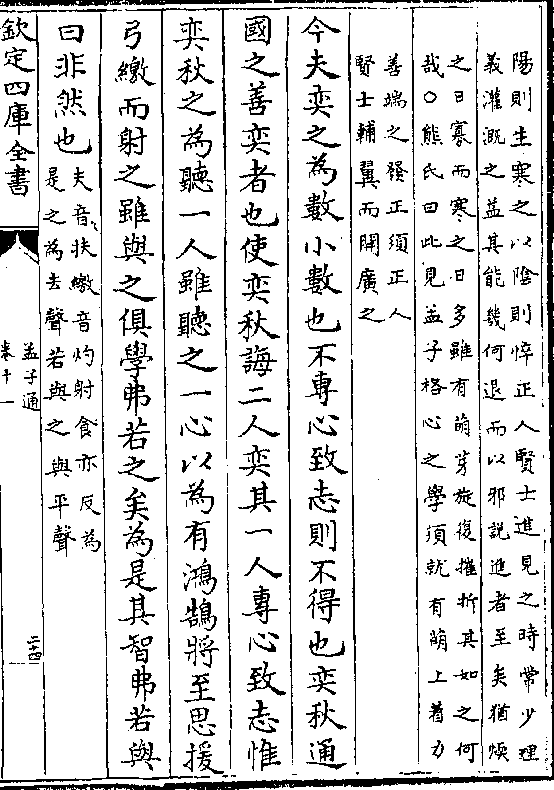 陽則生寒之以陰則悴正人賢士進見之時常少理
義灌溉之益其能幾何退而以邪說進者至矣猶煖
之日寡而寒之日多雖有萌芽旋復摧折其如之何
哉○熊氏曰此見孟子格心之學須就有萌上着力
善端之發正須正人
賢士輔翼而開廣之
今夫奕之為數小數也不專心致志則不得也奕秋通
國之善奕者也使奕秋誨二人奕其一人專心致志惟
奕秋之為聽一人雖聽之一心以為有鴻鵠將至思援
弓繳而射之雖與之俱學弗若之矣為是其智弗若與
曰非然也
夫音扶繳音灼射食亦反為
是之為去聲若與之與平聲
欽定四庫全書
孟子通
卷十一
二十四